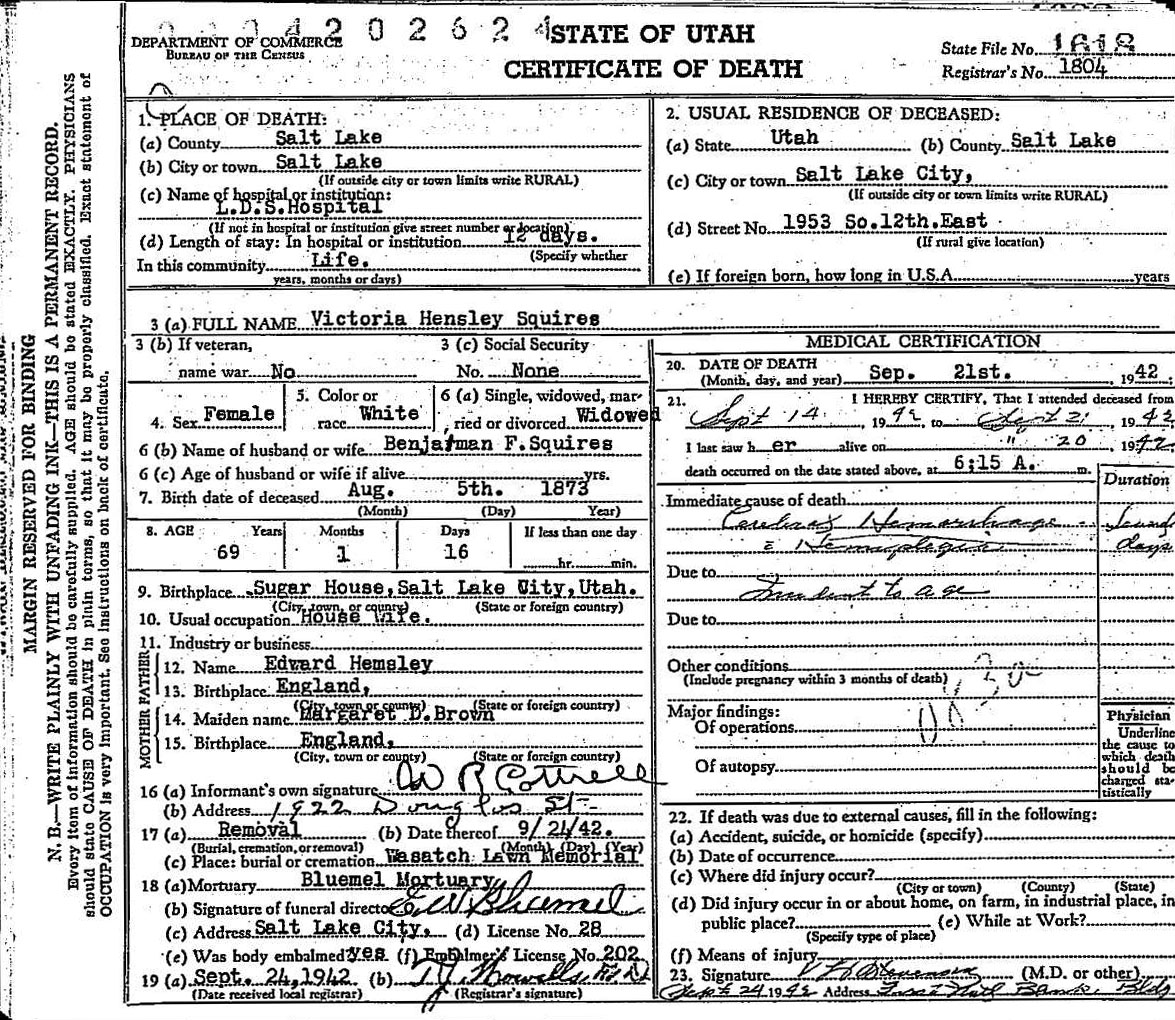 4 2 0 2 6 2 4
STATE OF UTAH
CERTIFICATE OF DEATH
DEPARTMENT OF COMMERCE
BUREAU OF THE CENSUS
State File No. 1618
Registrar's No. 1804
MARGIN RESERVED FOR BINDING
N. B.—WRITE PLAINLY WITH UNFADING INK—THIS IS A PERMANENT RECORD.
Every item of information should be carefully supplied. AGE should be stated EXACTLY. PHYSICIANS
should state CAUSE OF DEATH in plain terms, so that it may be properly classified. Exact statement of
OCCUPATION is very important. See instructions on back of certificate.
1. PLACE OF DEATH:
(a) County Salt Lake
(b) City or town Salt Lake
(If outside city or town limits write RURAL)
(c) Name of hospital or institution:
L.D.S.Hospital
(If not in hospital or institution give street number or location)
(d) Length of stay: In hospital or institution 12 days.
(Specify whether
In this community Life.
years, months or days)
2. USUAL RESIDENCE OF DECEASED:
(a) State Utah (b) County Salt Lake
(c) City or town Salt Lake City,
(If outside city or town limits write RURAL)
(d) Street No. 1953 So.12th.East
(If rural give location)
(e) If foreign born, how long in U.S.A. years
3 (a) FULL NAME Victoria Hensley Squires
3 (b) If veteran,
name war No
3 (c) Social Security
No. None
4. Sex Female
5. Color or
race White
6 (a) Single, widowed, mar-
ried or divorced Widowed
6 (b) Name of husband or wife Benjaman F.Squires
6 (c) Age of husband or wife if alive yrs.
7. Birth date of deceased Aug. 5th. 1873
(Month) (Day) Year)
8. AGE Years Months Days If less than one day
69 1 16 hr. min.
9. Birthplace Sugar House,Salt Lake City,Utah.
(City, town, or county) (State or foreign country)
10. Usual occupation House Wife.
11. Industry or business
FATHER
12. Name Edward Hemsley
13. Birthplace England,
(City, town or county) (State or foreign country)
MOTHER
14. Maiden name Margaret D.Brown
15. Birthplace England,
(City, town or county) (State or foreign country)
16 (a) Informant's own signature W R Cottrell
(b) Address 1922 Douglas St.
17 (a) Removal (b) Date thereof 9/24/42.
(Burial, cremation, or removal) (Month) (Day) (Year)
(c) Place: burial or cremation Wasatch Lawn Memorial
18 (a) Mortuary Bluemel Mortuary
(b) Signature of funeral director E.W. Bluemel
(c) Address Salt Lake City, (d) License No. 28
(e) Was body embalmed? yes (f) Embalmer's License No. 202
19 (a) Sept. 24,1942 (b)
(Date received local registrar) (Registrar's signature)
MEDICAL CERTIFICATION
20. DATE OF DEATH
(Month, day, and year) Sep. 21st. , 1942
21. I HEREBY CERTIFY, That I attended deceased from
Sept 14, 1942 to Sept 21, 1942
I last saw h er alive on " 20 1942
death occurred on the date stated above, at 6:15 A. m.
Duration
Immediate cause of death
Cerebral Hemorrhage
Hemiplegia days
Due to
to age
Due to
Other conditions
(Include pregnancy within 3 months of death)
Major findings:
Of operations
Of autopsy
Physician
Underline
the cause to
which death
should be
charged sta-
tistically
22. If death was due to external causes, fill in the following:
(a) Accident, suicide, or homicide (specify)
(b) Date of occurrence
(c) Where did injury occur?
(City or town) (County) (State)
(d) Did injury occur in or about home, on farm, in industrial place, in
public place? (e) While at Work?
(Specify type of place)
(f) Means of injury
23. Signature (M.D. or other)
Sept 24 1942 Address First Natl Bank Bldg